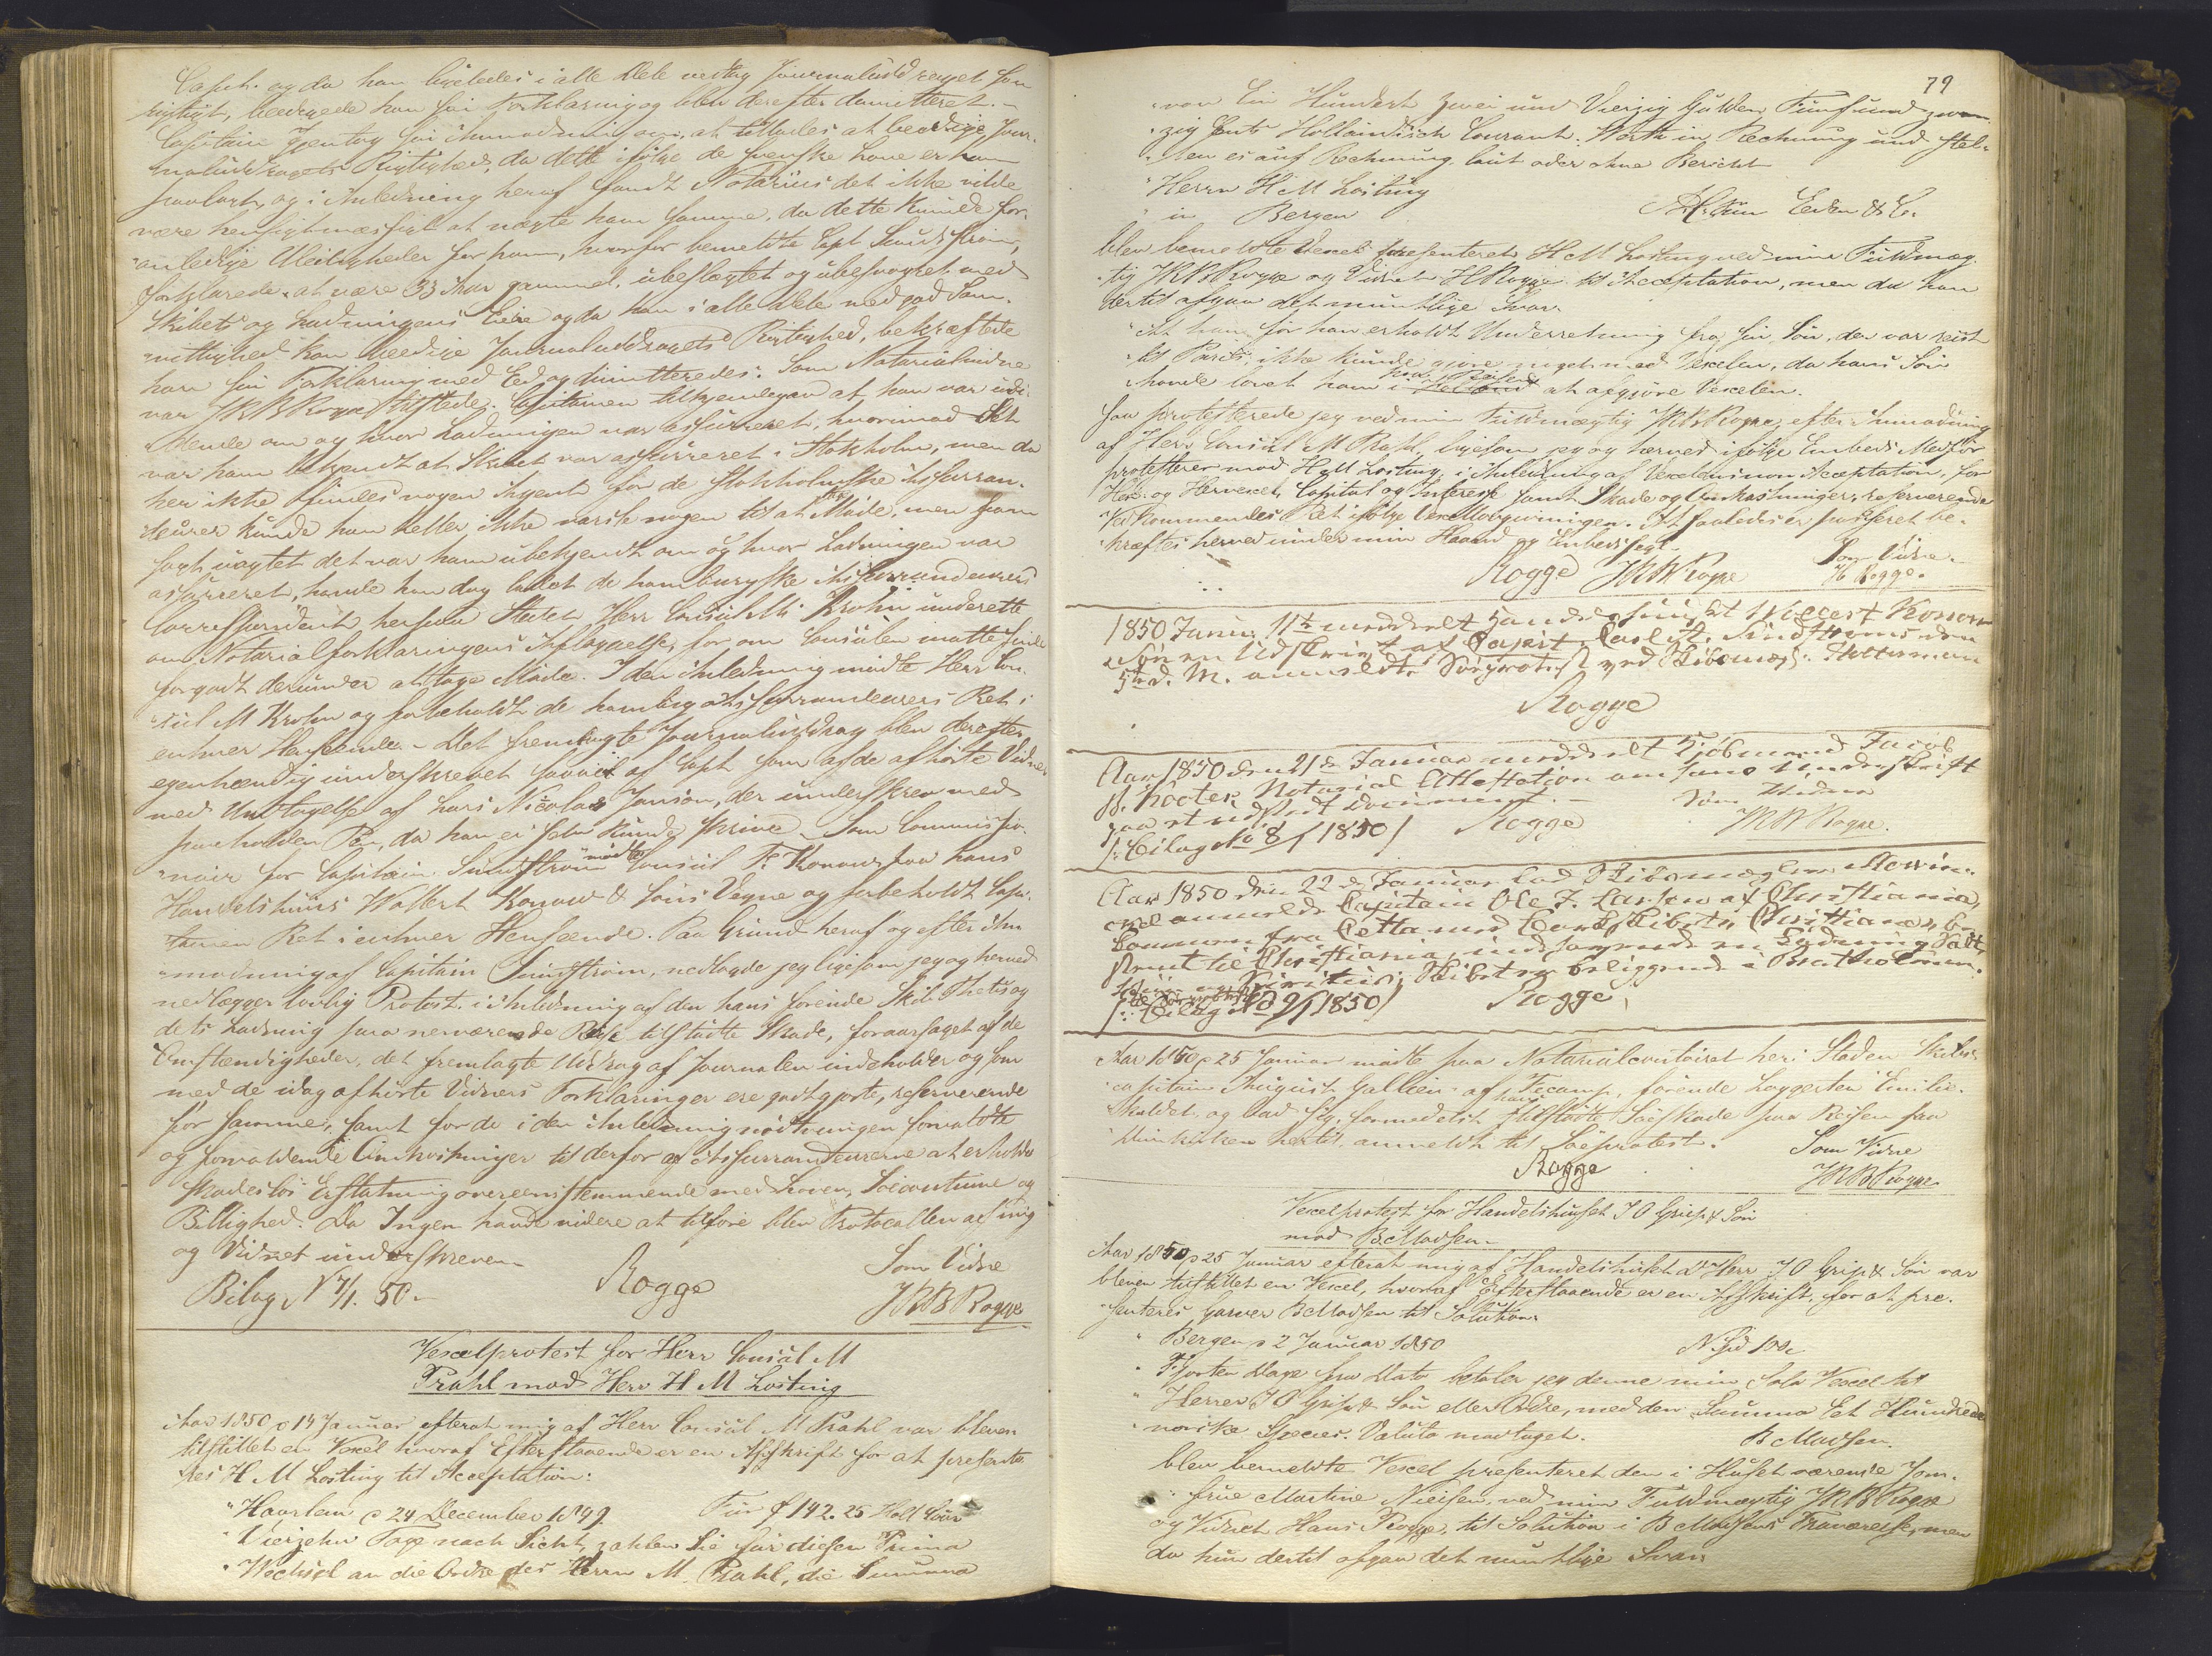 Capt. og da han ligeledes i alle Dele vedtog Journaluddraget som
rigtigt, beedigede han sin Forklaring og blev derefter dimitteret.-
Capitain gjentog sin Anmodning om, at tillades at beedige Jour-
naluddragets Rigtighed, da dette ifölge de svenske Love er ham
paalagt, og i Anledning heraf fandt Notarius det ikke vilde
være hensigtsmæssigt at nægte ham samme, da dette kunde for-
anledige Uleiligheder for ham, hvorfor bemeldte Capt Sundström,
forklarede, at være 33 Aar gammel, ubeslægtet og ubesvogret med
Skibets og Ladningens Eiere og da han i alle Dele med god Sam-
vittighed kan beedige Journaluddragets Rigtighed, bekræftede
han sin Forklaring med Eed og dimitteredes. Som Notarialvidne
var JKB Rogge tilstede. Capitainen tilkjendegav at han var uvi-
dende om og hvor Ladningen var assureret, hvorimod det
var ham bekjendt at Skibet var assurreret i Stokholm, men da
her ikke findes nogen Agent for de stokholmske Assurran-
deurer kunde han heller ikke varsle nogen til at Möde, men som
sagt uagtet det var ham ubekjendt om og hvor Ladningen var
assurreret, havde han dog ladet de hamburgske Assurrandeurers
Correspondent hersteds Stadet Herr Consul M Krohn underette
om Notarialforklaringens Aflæggelse, for om Consulen maatte finde
forgodt derunder at tage Möde. I den Anledning mödte Herr Con-
sul M Krohn og forbeholdt de hamburg Assurrandeurers Ret i
enhver Henseende. - Det fremlagte Journaluddrag blev derefter
egenhændig underskrevet saavel af Capt som af de afhörte Vidner
med Undtagelse af Lars Nicolas Janson, der underskrev med
paaholden Pen, da han ei selv kunde skrive. Som Commissio-
nair for Capitain Sundström mödte Consul Fr Konow paa hans
Handelshuus Wollert Konow & Söns Vegne og forbeholdt Capi-
tainen Ret i enhver Henseende. Paa Grund heraf og efter An-
modning af Capitain Sundström, nedlagde jeg ligesom jeg og herved
nedlægger lovlig Protest i Anledning af den hans förende Skib Thetis og
dets Ladning paa nærværende Reise tilstödte Skade, foraarsaget af de
Omstændigheder, det fremlagte Uddrag af Journalen indeholder og som
med de idag afhörte Vidners Forklaringer ere godtgjorte, reserverende
för samme, samt for de i den Anledning nödtvungen forvoldte
og forvoldende Omkostninger til derfor af Assurrandeurerne at erholde
skadeslös Erstatning overeensstemmende med Loven, Söcoutume og
Billighed. Da Ingen havde videre at tilföie blev Protocollen af mig
og Vidnet underskreven.
Bilag N 7/1. 50.- Rogge Som Vidne
JKB Rogge
Vexelprotest for Herr Consul M
Prahl mod Herr H M Losting
Aar 1850 d 14 Januar efterat mig af Herr Consul M Prahl var bleven
tilstillet en Vexel hvoraf Efterstaaende er en Afskrift for at presente-
res H M Losting til Acceptation:
"Haarlem d 24 December 1849. Für f 142. 25 Holl Cour
"Vierzehn Tage nach Sicht, zahlen Sie für diesen Prima
"Wechsel an die Ordre des Herrn M. Prahl, die Summa
79
"von Ein Hundert Zwei und Vierzig Gulden Fünfund zwan-
"zig Cents Holländisch Courant. Werth in Rechnung und stel-
"len es auf Rechnung laut oder ohne Bericht
"Herrn H M Losting
"in Bergen
blev bemeldte Vexel presenteret H M Losting ved min Fuldmæg-
tig JKB Rogge og Vidnet H Rogge til Acceptation, men da han
dertil afgav det mundtlige Svar.
"At han för han erholdt Underretning fra sin Sön, der var reist
"til Paris, ikke kunde gjöre noget med Vexelen, da hans Sön
"havde lovet ham i at afgjöre Vexelen.
saa protesterede jeg ved min Fuldmægtig JKB Rogge, efter Anmodning
af Herr Consul M Prahl, ligesom jeg og herved ifölge Embeds Medför
protesterer mod H M Losting, i Anledning af Vexelens non Acceptation, for
Hen- og Hervexel, Capital og Interesse samt Skade og Omkostninger, reserverende
Vedkommendes Ret ifölge Vexellovgivningen. At saaledes er passeret be-
kræftes herved under min Haand og Embedssegl.
Rogge JKB Rogge Som Vidne
H Rogge.
1850 Januar 11te meddeelt Handelshuuset Wollert Konow
& Sön en Udskrift af Capit Carl G. Sundströms den
5te d. M. anmeldte Söeprotest ved Skibsmægl: Mowinckel
Rogge
Aar 1850 den 21de Januar meddeelt Kjöbmand Jacob
p. Kooter Notarial Attestation om hans Underskrift
paa et udstedt Document.- Som Vidne
/: Bilag No 8/1850/ Rogge JKB Rogge.
Aar 1850 den 22de Januar lod Skibsmægler Mowin-
ckel anmelde Capitain Ole J. Larsen af Christiania,
kommen fra Cetta med Bark Skibet Christiane, be-
stemt til Christiania, indhavende en Ladning Salt,
Viin og Spiritus; Skibet er beliggende i Bratholmen.
/: Bilag No 9/1850/ Rogge
Aar 1850 d 25 Januar mödte paa Notarialcontoiret her i Staden Skibs-
capitain August Gallien af Fecamp, förende Loggerten Emilie
kaldet og lod sig, formedelst havt tilstödt Söeskade paa Reisen fra
Dunkirken hertil, anmelde til Söeprotest. Som Vidne
Rogge JKB Rogge
Vexelprotest for Handelshuset J O Griep & Sön
mod B Madsen.
Aar 1850 d 25 Januar efterat mig af Handelshuset d' Herr J O Griep & Sön var
bleven tilstillet en Vexel, hvoraf Efterstaaende er en Afskrift, for at pre-
senteres Garver B Madsen til Solution.
" Bergen d 2 Januar 1850 N. Spd 100.
" Fjorten Dage fra Dato betaler jeg denne min Sola Vexel til
" Herrer J O Griep & Sön eller Ordre, med den Summa Et Hundrede
" norske Species. Valuta modtaget. B Madsen.
blev bemeldte Vexel presenteret den i Huset værende Jom-
frue Martine Nielsen, ved min Fuldmægtig JKB Rogge
og Vidnet Hans Rogge, til Solution i B Madsens Fraværelse, men
da hun dertil afgav det mundtlige Svar